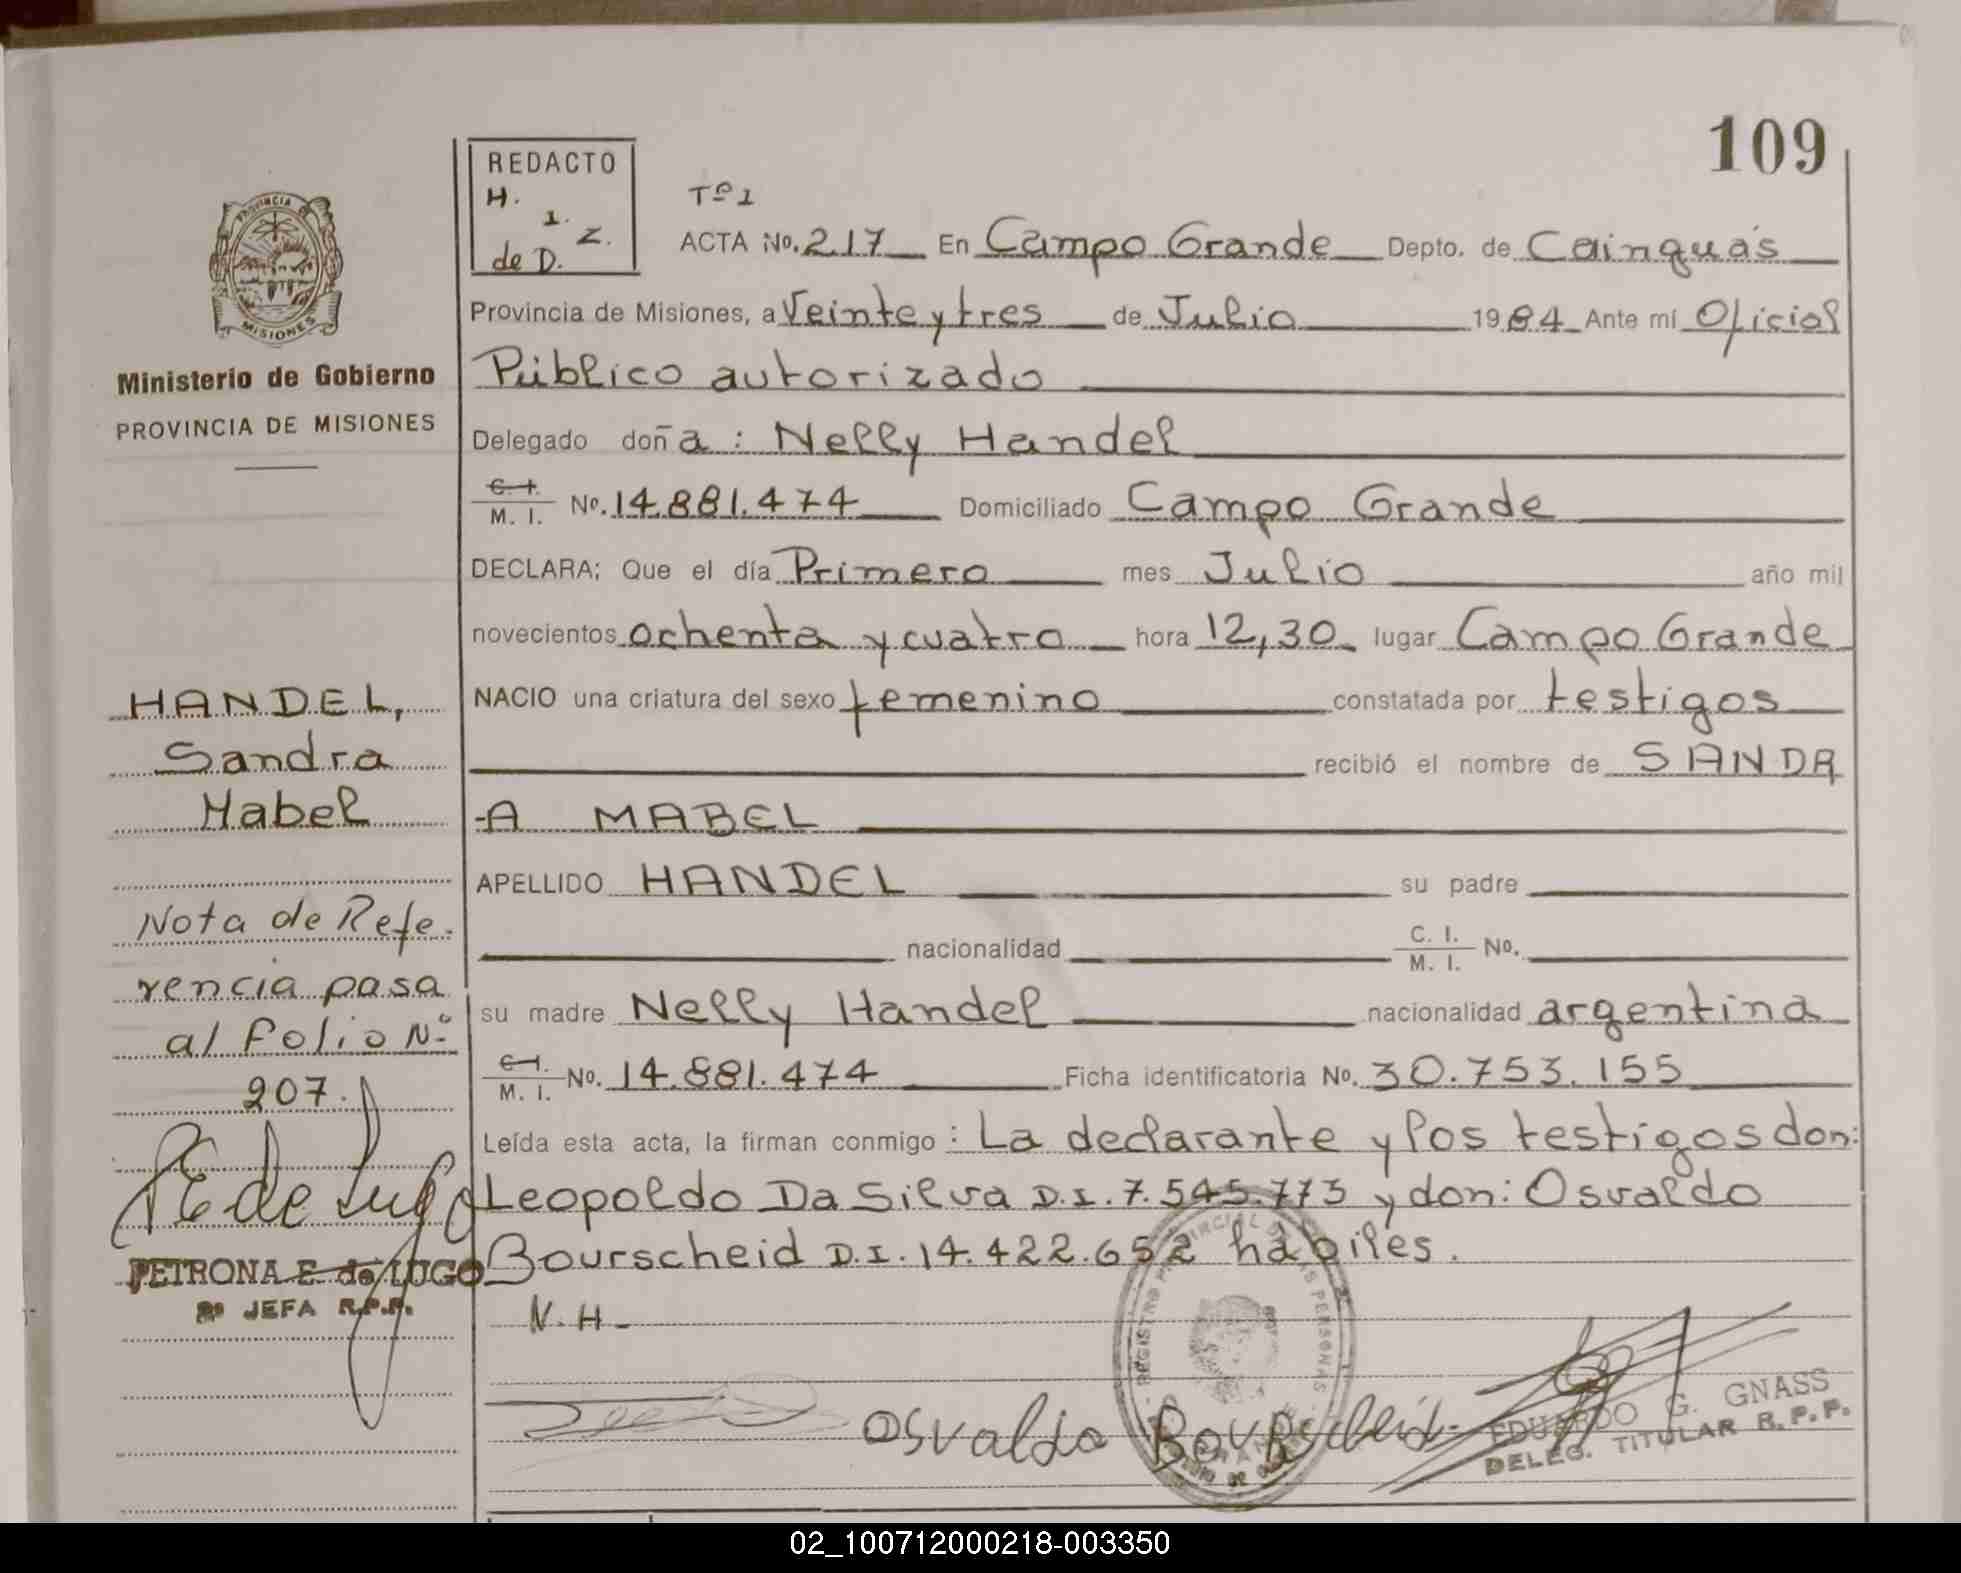 109
REDACTO
H.
I.
Z.
de D.
Tº 1
ACTA No. 217 En Campo Grande Depto. de Cainguás
Provincia de Misiones, a Veinte y tres de Julio 1984 Ante mí Oficial
Público autorizado
Delegado doña : Nelly Handel
C. I. M. I. No. 14.881.474 Domiciliado Campo Grande
DECLARA; Que el día Primero mes Julio año mil
novecientos ochenta y cuatro hora 12,30 lugar Campo Grande
NACIO una criatura del sexo femenino constatada por testigos
recibió el nombre de SANDR
-A MABEL
APELLIDO HANDEL su padre
nacionalidad C. I. M. I. No.
su madre Nelly Handel nacionalidad argentina
C. I. M. I. No. 14.881.474 Ficha identificatoria No. 30.753.155
Leída esta acta, la firman conmigo : La declarante y los testigos don:
Leopoldo Da Silva D.I. 7.545.773 y don: Osvaldo
Bourscheid D.I. 14.422.652 hábiles.
N. H.
Osvaldo Bourscheid
EDUARDO G. GNASS
DELEG. TITULAR R.P.P.
PROVINCIA DE
MISIONES
Ministerio de Gobierno
PROVINCIA DE MISIONES
HANDEL,
Sandra
Mabel
Nota de Refe-
rencia pasa
al folio Nº
207.
PE de Lugo
PETRONA E. de LUGO
2º JEFA R.P.P.
02_100712000218-003350